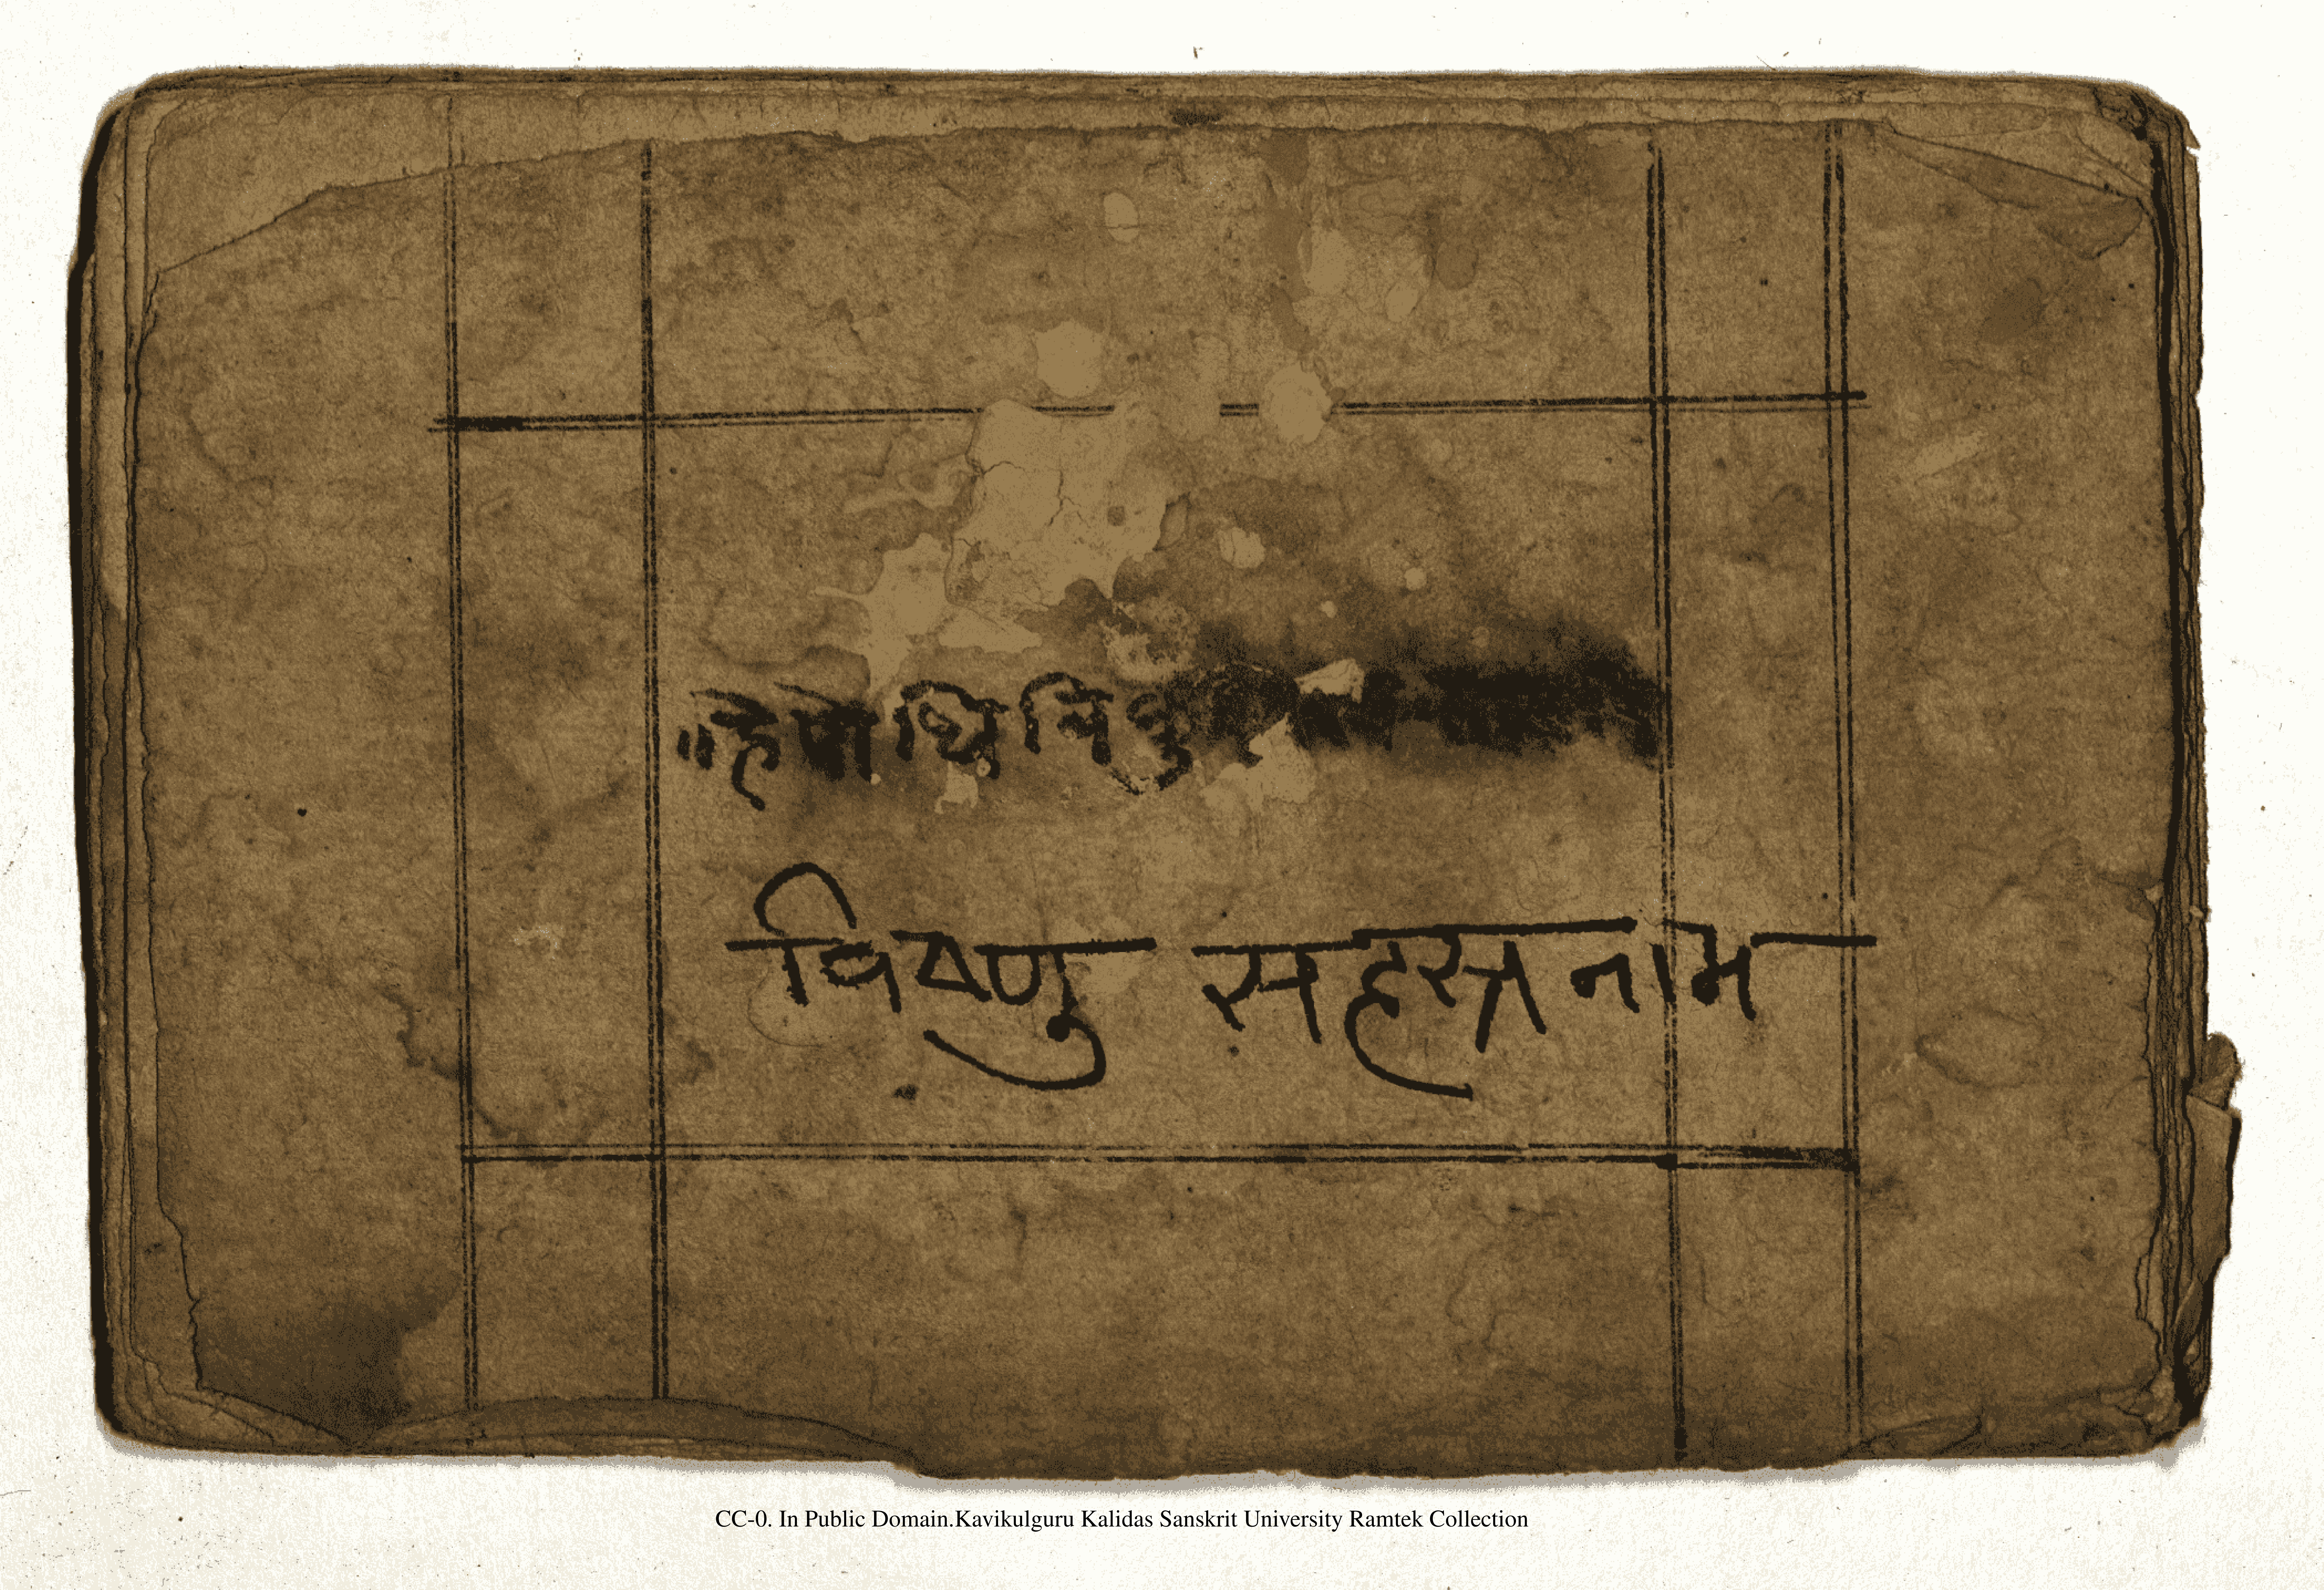 ॥हे पोथि
विष्णु सहस्त्रनाम
CC-0. In Public Domain.Kavikulguru Kalidas Sanskrit University Ramtek Collection